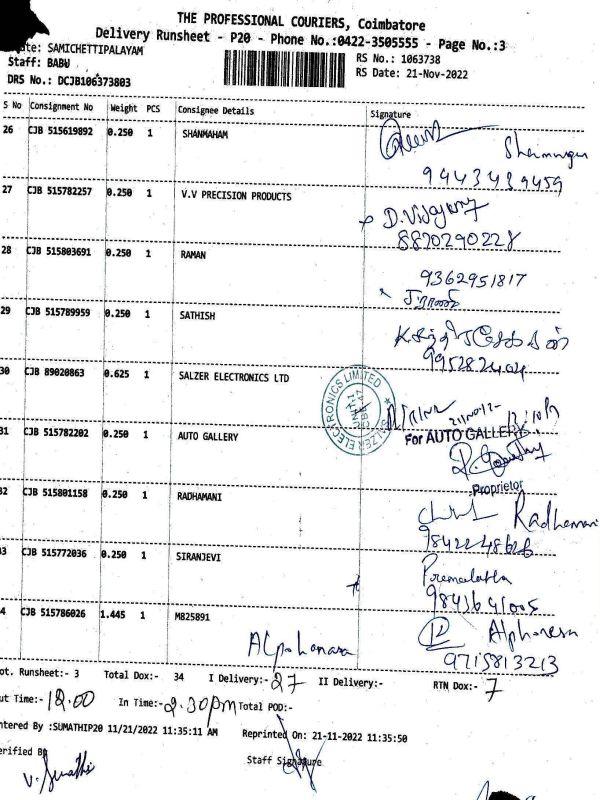 THE PROFESSIONAL COURIERS, Coimbatore
Delivery Runsheet - P20 - Phone No.:0422-3505555 - Page No.:3
SAMICHETTIPALAYAM
RS No.: 1063738
Staff: BABU
RS Date: 21-Nov-2022
DRS No.: DCJB106373803
S No Consignment No Weight PCS Consignee Details Signature
26 CJB 515619892 0.250 1 SHANMAHAM
9443439459
27 CJB 515782257 0.250 1 V.V PRECISION PRODUCTS
8870290228
28 CJB 515803691 0.250 1 RAMAN
9362951817
29 CJB 515789959 0.250 1 SATHISH
30 CJB 89020863 0.625 1 SALZER ELECTRONICS LTD
SALZER ELECTRONICS LIMITED
31 CJB 515782202 0.250 1 AUTO GALLERY
For AUTO GALLERY
Proprietor
32 CJB 515801158 0.250 1 RADHAMANI
Radhamani
9842248626
33 CJB 515772036 0.250 1 SIRANJEVI
Premalatha
9843641005
34 CJB 515786026 1.445 1 M825891
Alphonesa
9715813213
Tot. Runsheet:- 3 Total Dox:- 34 I Delivery:- 27 II Delivery:- RTN Dox:- 7
Out Time:- 12.00 In Time:- 2.30pm Total POD:-
Entered By :SUMATHIP20 11/21/2022 11:35:11 AM Reprinted On: 21-11-2022 11:35:50
Verified By
Staff Signature